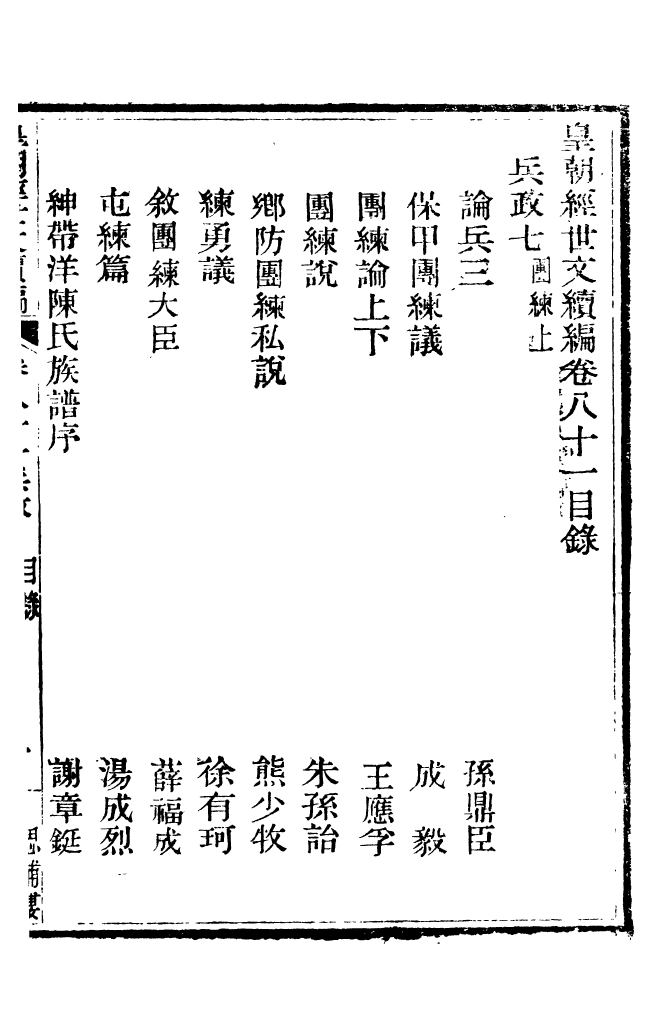 皇朝經世文續編卷八十一目錄
兵政七團練上
論兵三 孫鼎臣
保甲團練議 成毅
團練論上下 王應孚
團練說 朱孫詒
鄉防團練私說 熊少牧
練勇議 徐有珂
敘團練大臣 薛福成
屯練篇 湯成烈
紳帶洋陳氏族譜序 謝章鋌
目錄
思補樓